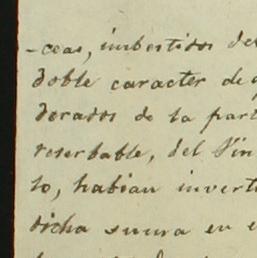 -ceas, imbestidos de
doble caracter de
dorados de la part
reserbable, del Vin
lo, habian inverti
dicha suma en e